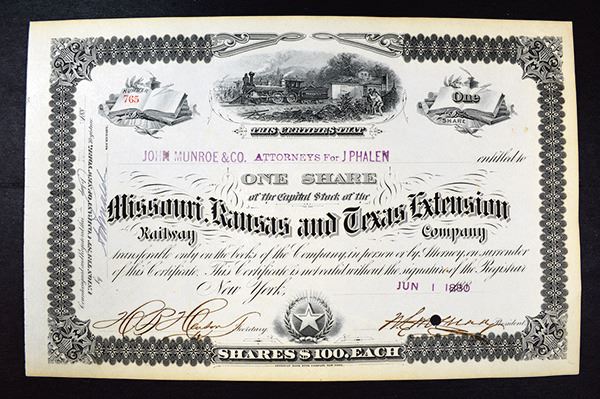 NUMBER
765
One
SHARE
THIS CERTIFIES THAT
JOHN MUNROE & CO. ATTORNEYS FOR J PHALEN entitled to
ONE SHARE
of the Capital Stock of the
Missouri, Kansas and Texas Extension
Railway Company
transferable only on the books of the Company, in person or by Attorney, on surrender
of this Certificate. This Certificate is not valid without the signature of the Registrar
New York, JUN 1 1880
Secretary
President
SHARES $100. EACH